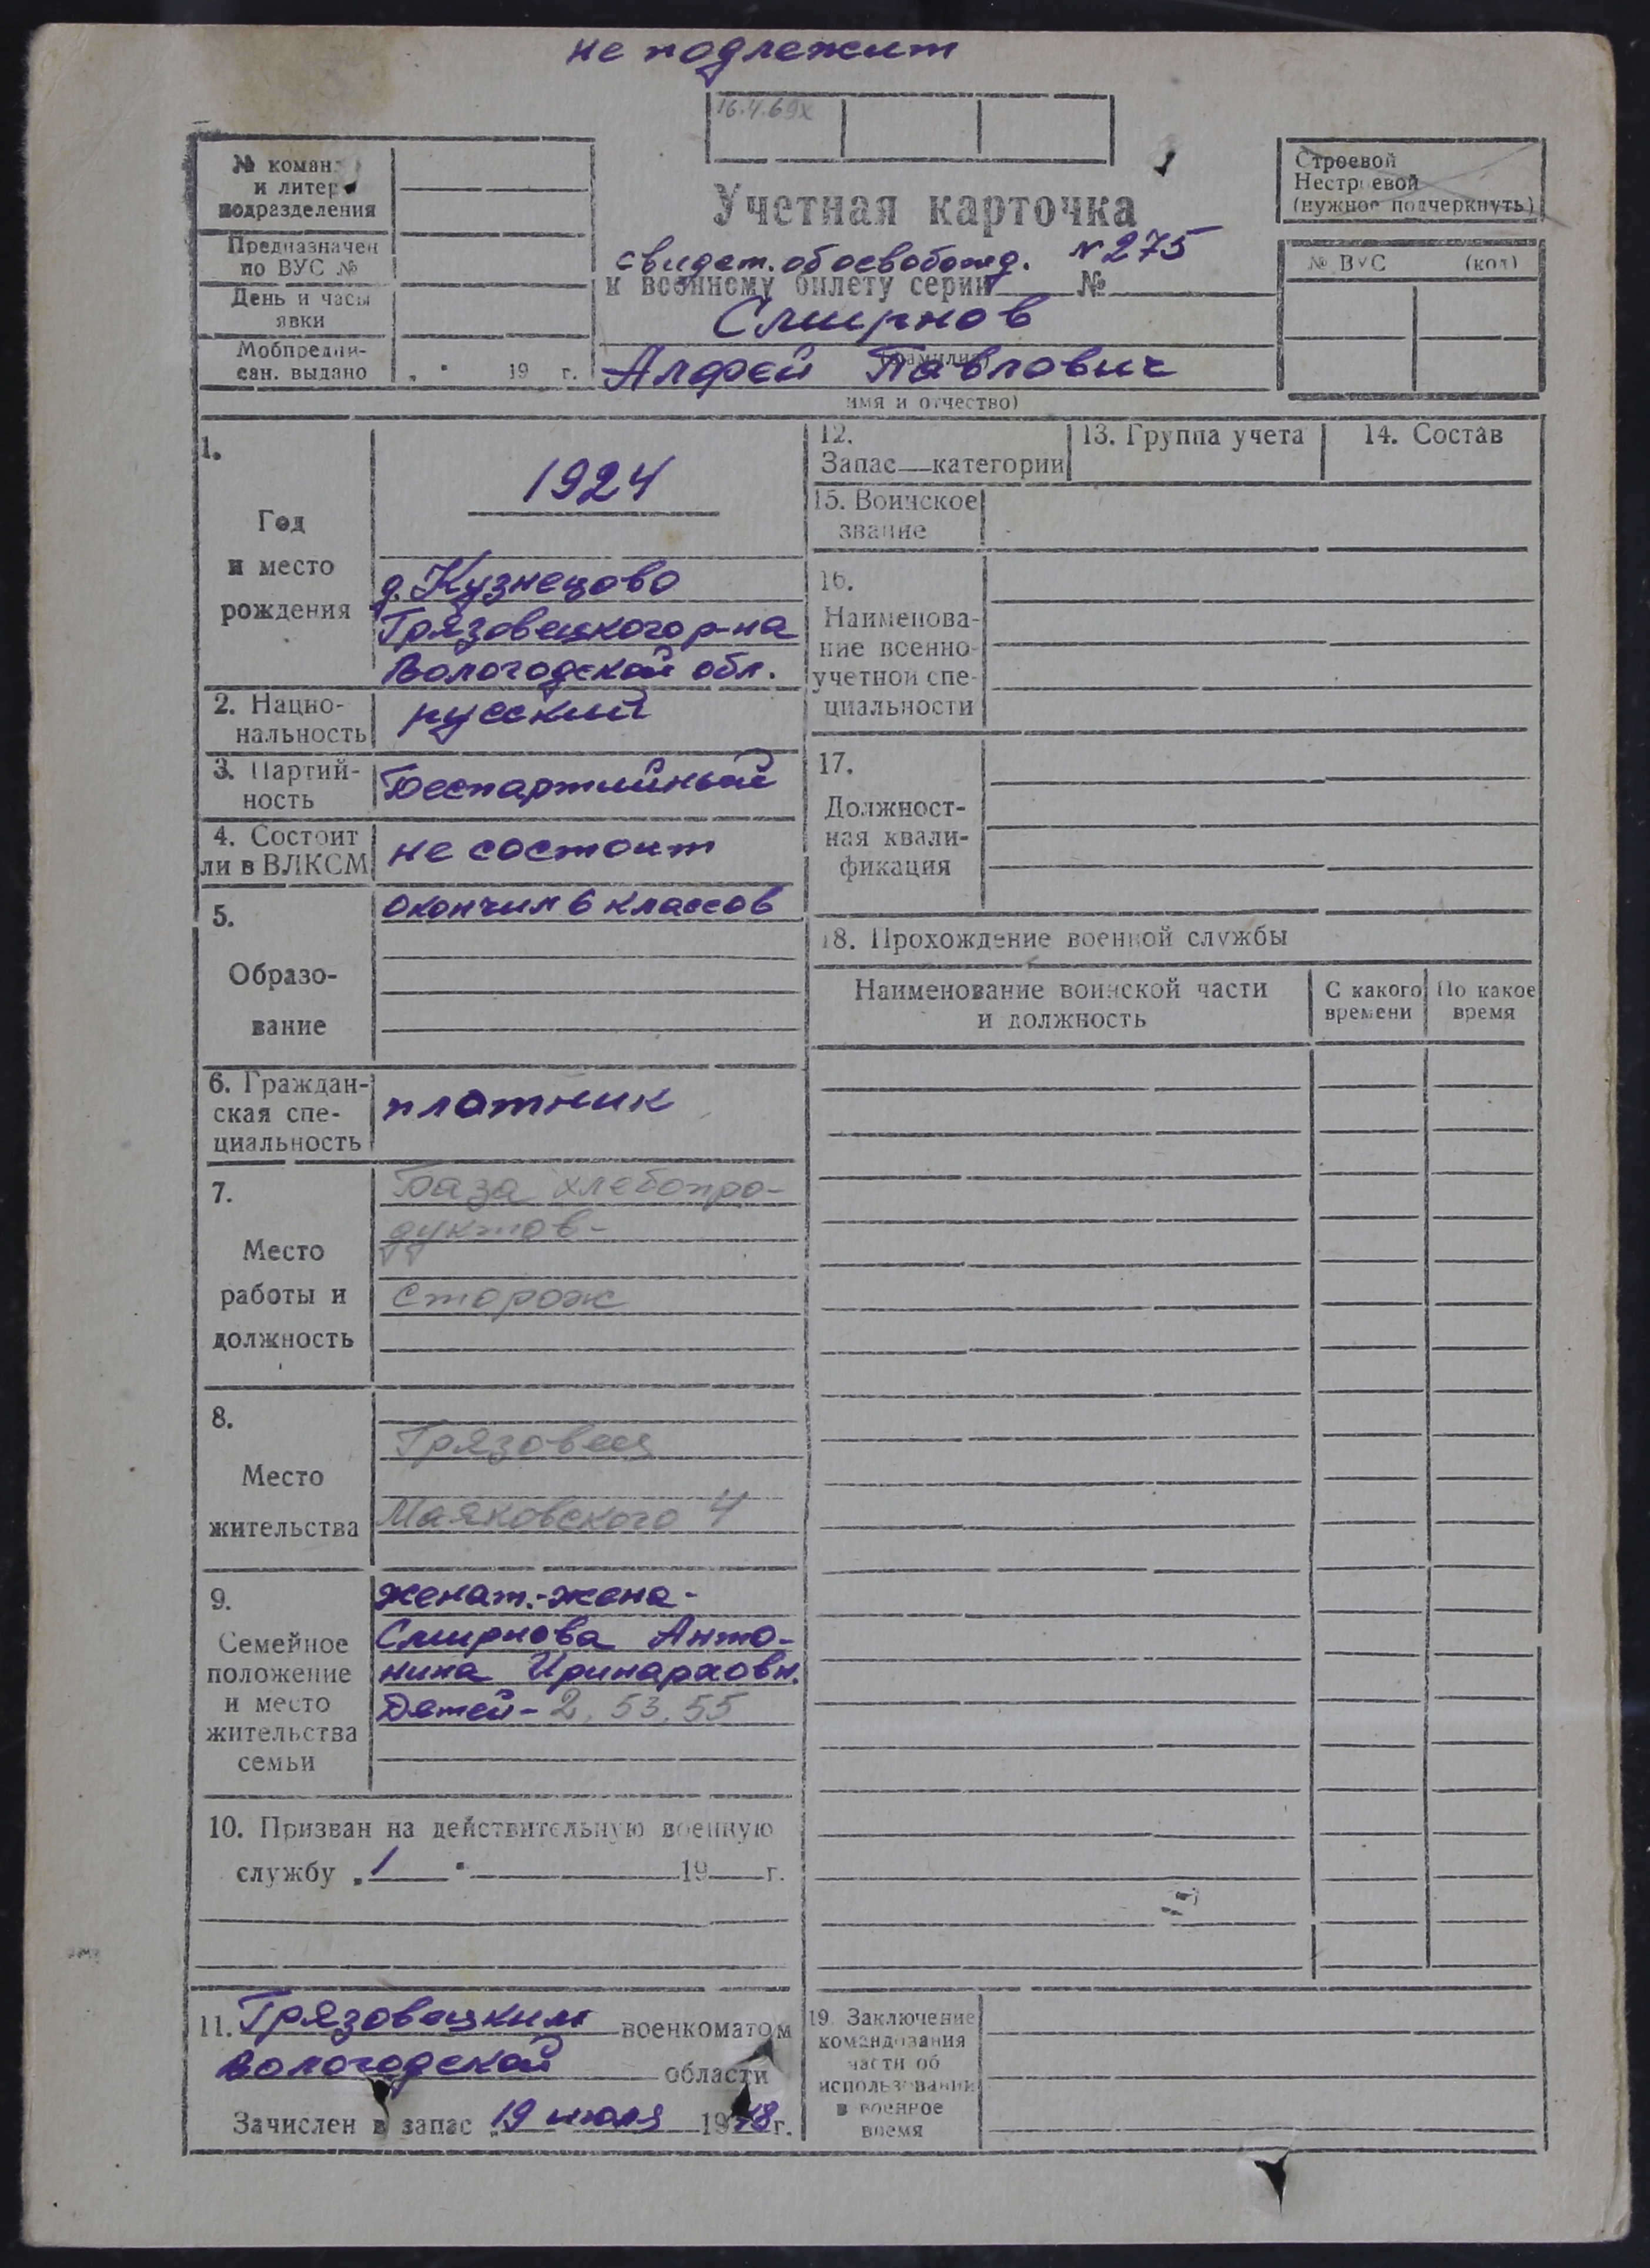 не подлежит
16.4.69х
№ коман
и литер
подразделения
Предназначен
по ВУС №
День и часы
явки
Мобпредпи-
сан. выдано „ " 19 г.
Строевой
Нестроевой
(нужное подчеркнуть)
№ ВУС (код)
Учетная карточка
свидет. об освобожд. № 275
к военному билету серии № 
Смирнов
(фамилия)
Алфей Павлович
имя и отчество)
1.
Год
и место
рождения
1924
д. Кузнецово
Грязовецкого р-на
Вологодской обл.
2. Нацио-
нальность
русский
3. Партий-
ность
Беспартийный
4. Состоит
ли в ВЛКСМ
не состоит
5.
Образо-
вание
окончил 6 классов
6. Граждан-
ская спе-
циальность
плотник
7.
Место
работы и
должность
База хлебопро-
дуктов-
сторож
8.
Место
жительства
Грязовец
Маяковского 4
9.
Семейное
положение
и место
жительства
семьи
женат.-жена-
Смирнова Анто-
нина Иринарховн.
Детей- 2, 53, 55
10. Призван на действительную военную
службу „ 1 " 19 г.
11. Грязовецким военкоматом
Вологодской области
Зачислен в запас „19 июля 19 г.
12.
Запас категории
13. Группа учета
14. Состав
15. Воинское
звание
16.
Наименова-
ние военно-
учетной спе-
циальности
17.
Должност-
ная квали-
фикация
18. Прохождение военной службы
Наименование воинской части
и должность
С какого
времени
По какое
время
19. Заключение
командования
части об
использовании
в военное
время